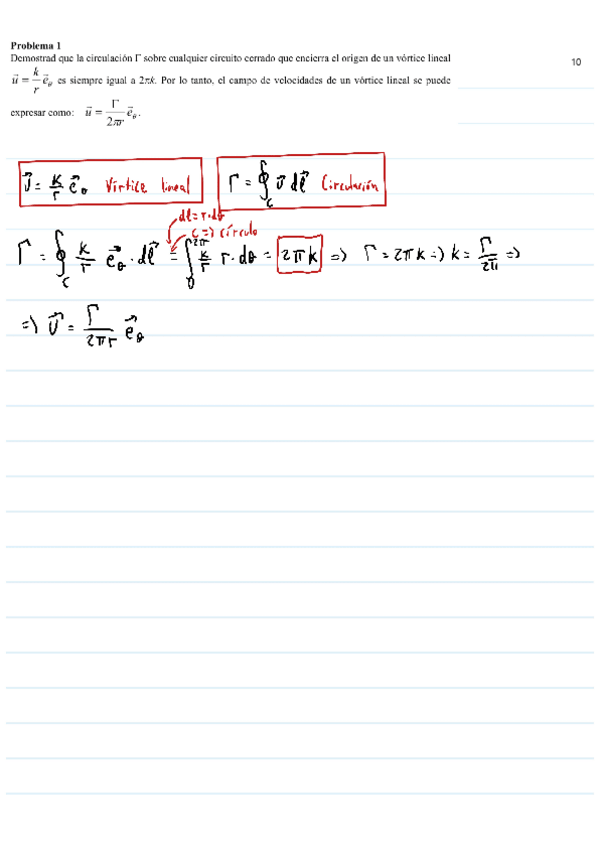 Problema 1
Demostrad que la circulación Γ sobre cualquier circuito cerrado que encierra el origen de un vórtice lineal
10
u⃗ = k/r e⃗_θ es siempre igual a 2πk. Por lo tanto, el campo de velocidades de un vórtice lineal se puede
expresar como: u⃗ = Γ/2πr e⃗_θ.
v⃗ = k/r e⃗_θ Vórtice lineal
Γ = ∮_c v⃗ dl⃗ Circulación
dl = r·dθ
c => círculo
Γ = ∮_c k/r e⃗_θ · dl⃗ = ∫_0^2π k/r r·dθ = 2πk => Γ = 2πk => k = Γ/2π =>
=> v⃗ = Γ/2πr e⃗_θ